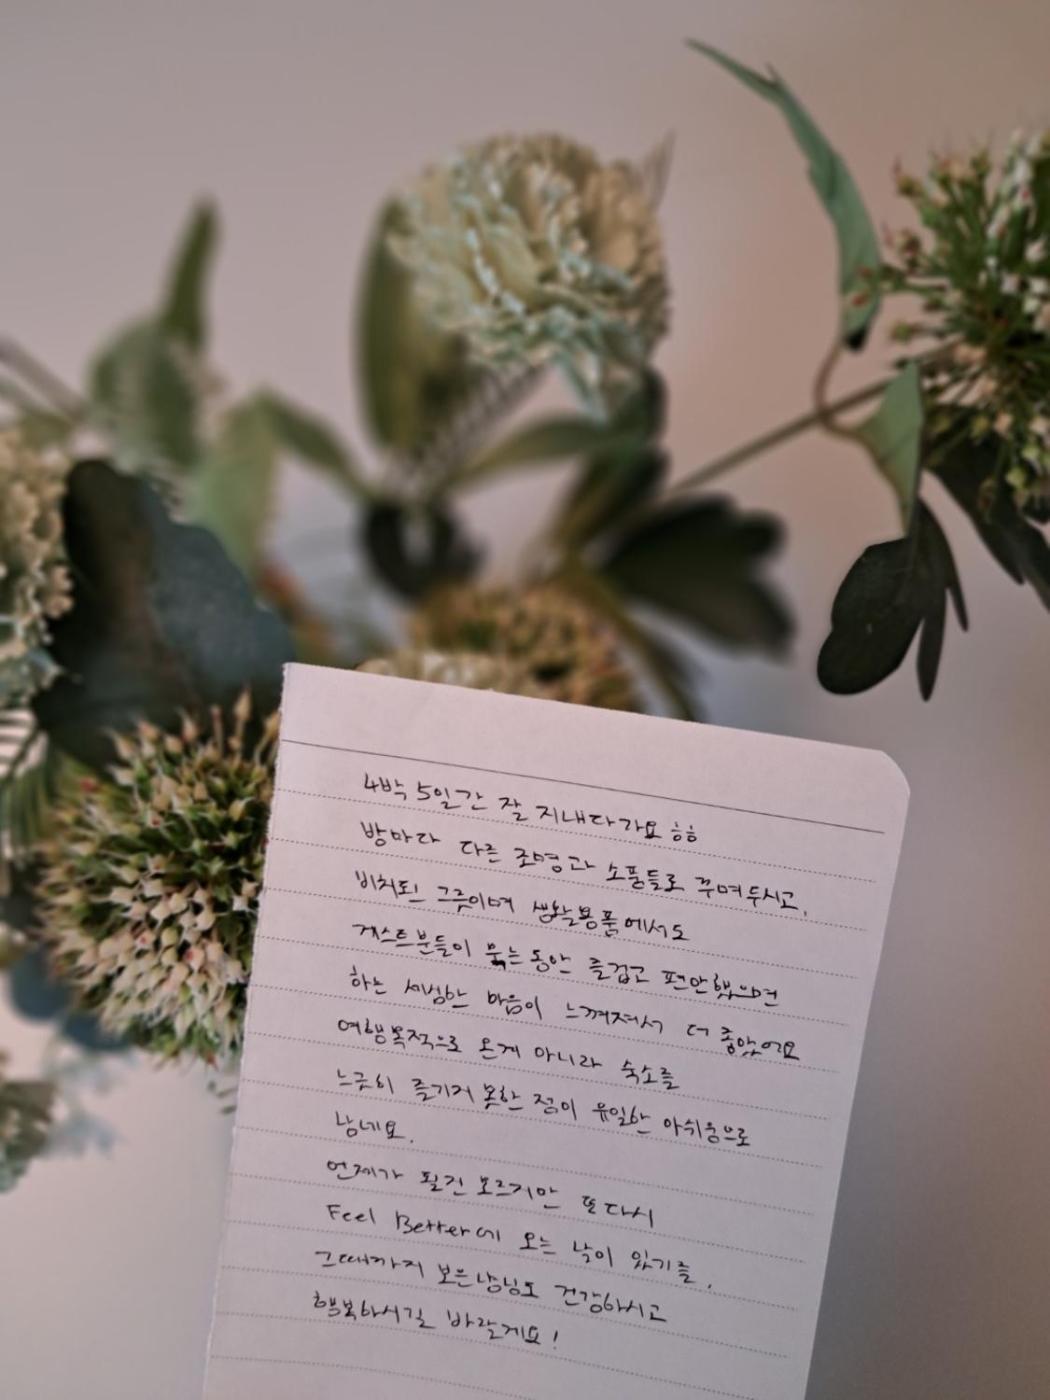 4박 5일간 잘 지내다가요 ㅎㅎ
방마다 다른 조명과 소품들로 꾸며두시고,
비치된 그릇이며 생활용품에서도
게스트분들이 묵는 동안 즐겁고 편안했으면
하는 세심한 마음이 느껴져서 더 좋았어요
여행목적으로 온게 아니라 숙소를
느긋히 즐기지 못한 점이 유일한 아쉬움으로
남네요.
언제가 될진 모르지만 또 다시
Feel Better에 오는 날이 있기를,
그때까지 보은냥님도 건강하시고
행복하시길 바랄게요!